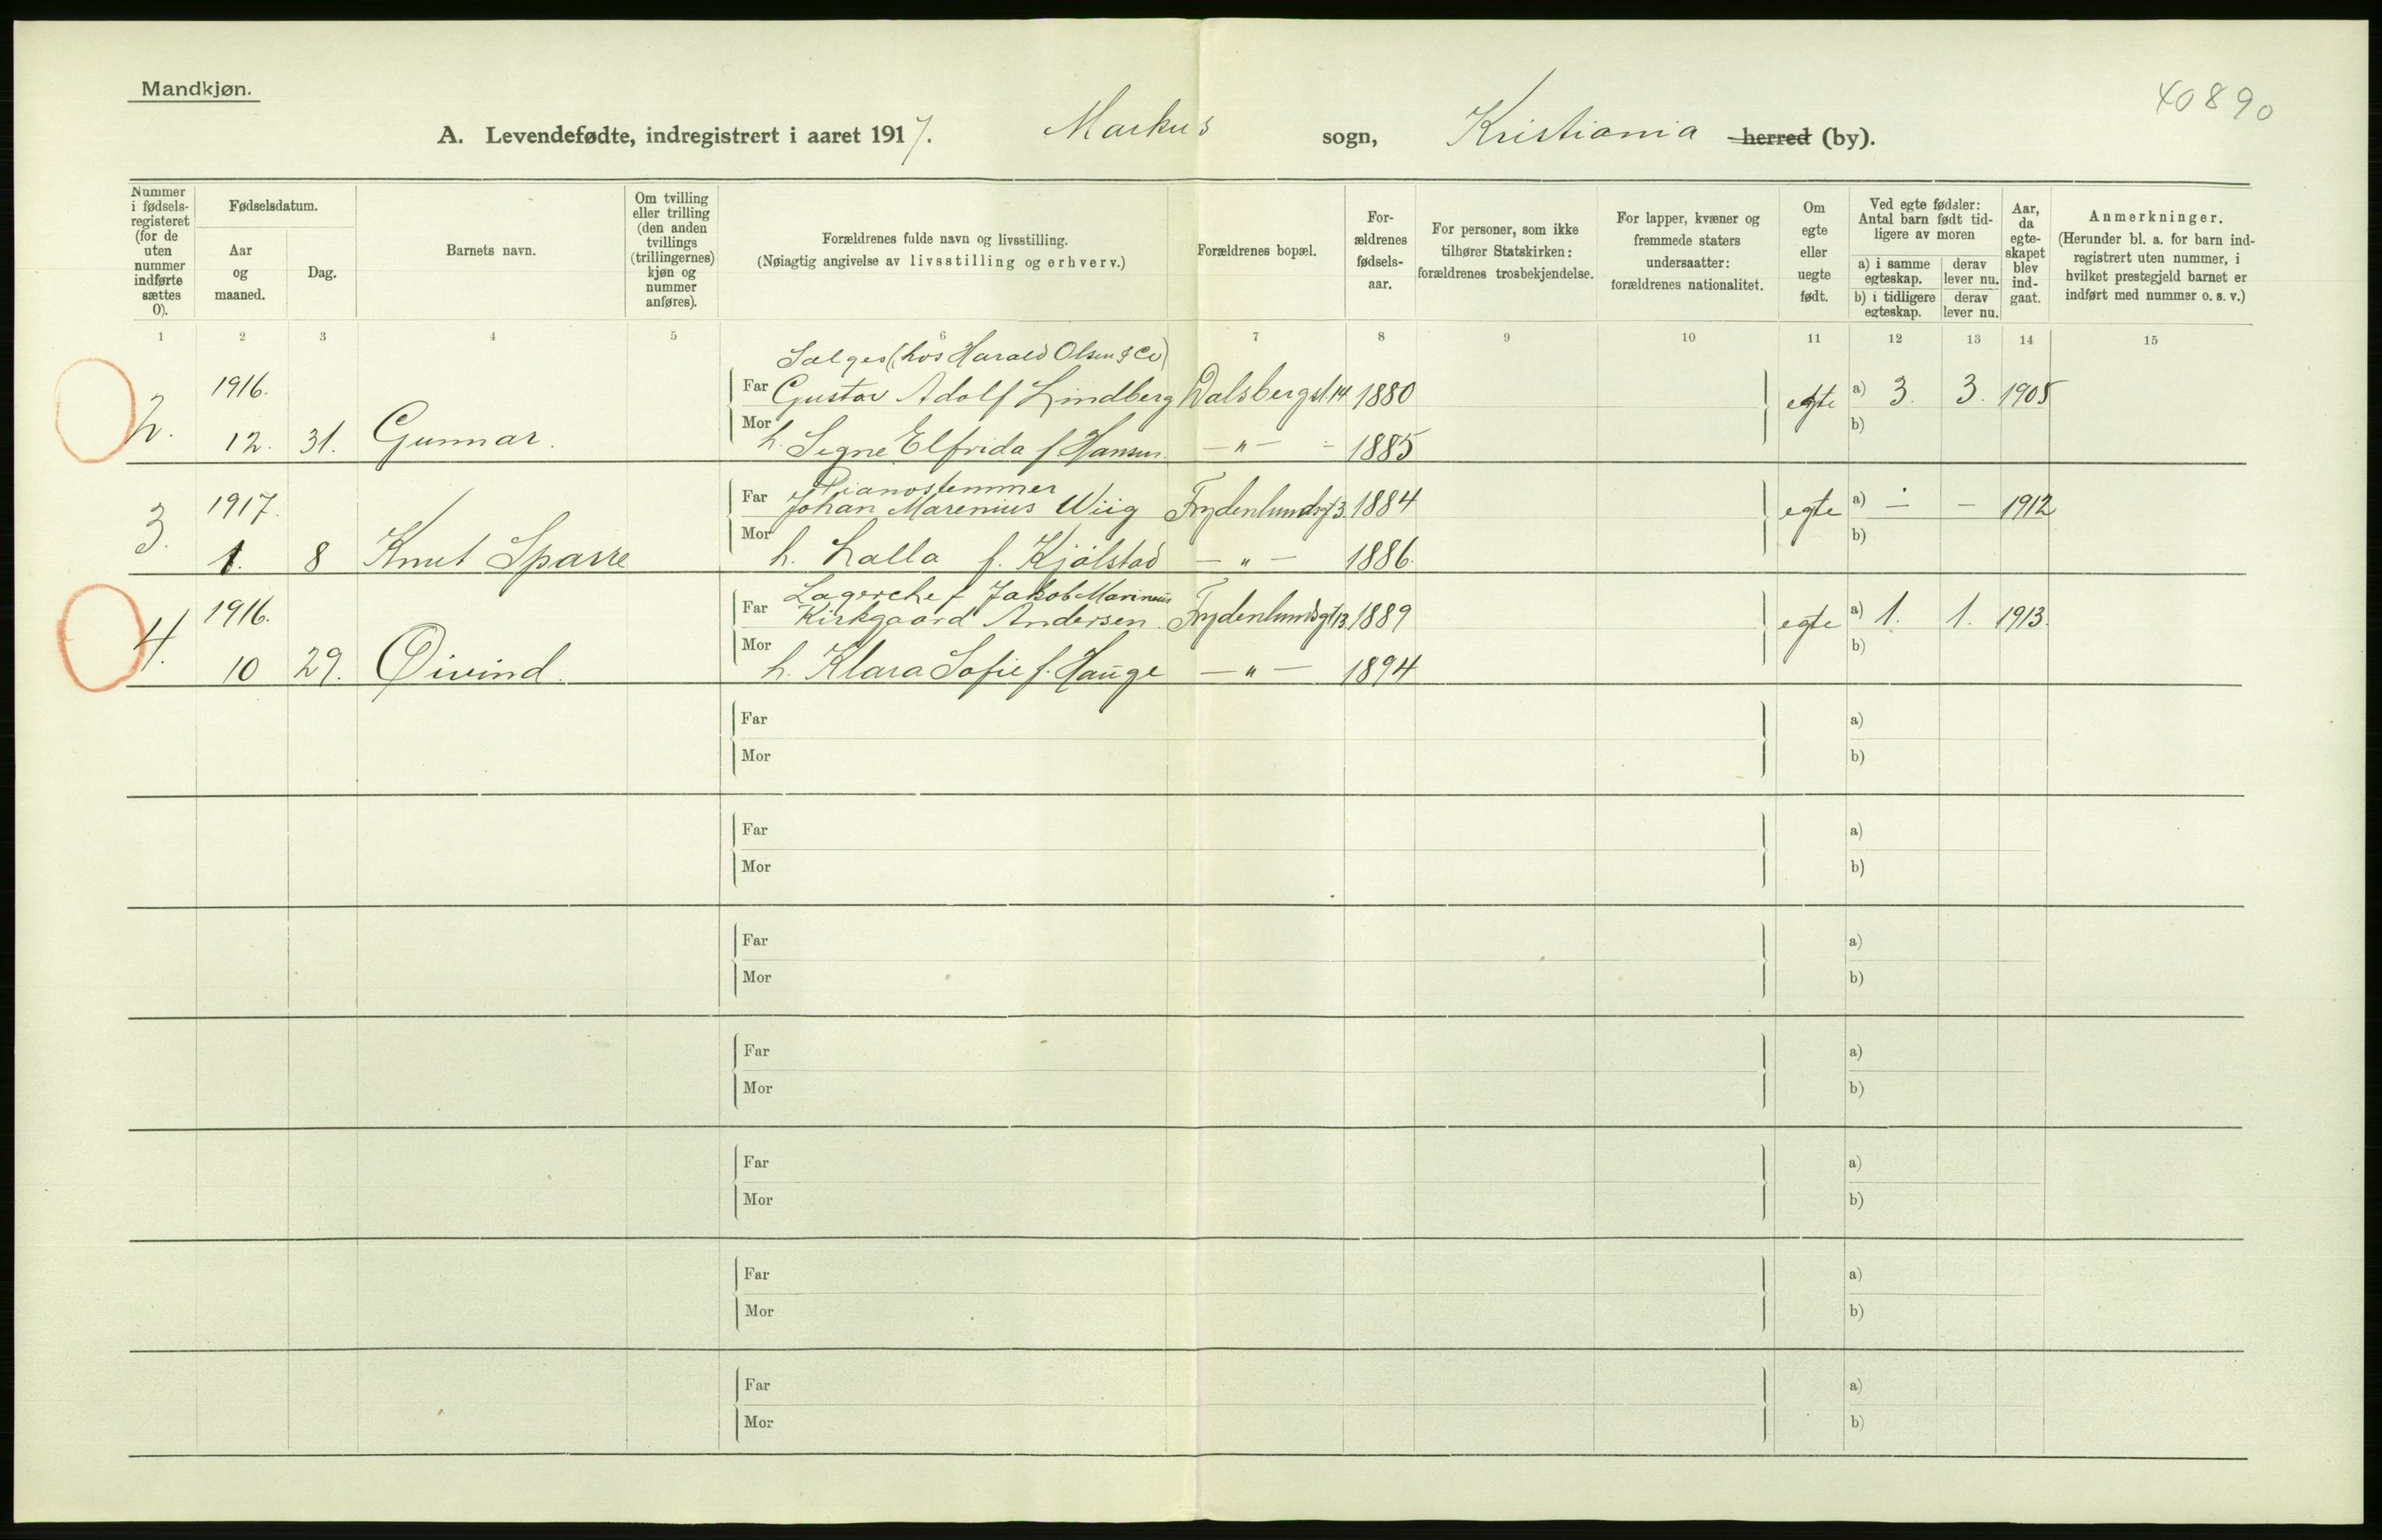 Mandkjøn.
40890
A. Levendefødte, indregistrert i aaret 1917. Markus sogn, Kristiania herred (by).
Nummer i fødselsregisteret (for de uten nummer indførte sættes 0).
Fødselsdatum.
Aar og maaned.
Dag.
Barnets navn.
Om tvilling eller trilling (den anden tvillings (trillingernes) kjøn og nummer anføres).
Forældrenes fulde navn og livsstilling.
(Nøiagtig angivelse av livsstilling og erhverv.)
Forældrenes bopæl.
Forældrenes fødselsaar.
For personer, som ikke tilhører Statskirken: forældrenes trosbekjendelse.
For lapper, kvæner og fremmede staters undersaatter: forældrenes nationalitet.
Om egte eller uegte født.
Ved egte fødsler: Antal barn født tidligere av moren
a) i samme egteskap.
derav lever nu.
b) i tidligere egteskap.
derav lever nu.
Aar, da egteskapet blev indgaat.
Anmerkninger.
(Herunder bl. a. for barn indregistrert uten nummer, i hvilket prestegjeld barnet er indført med nummer o. s. v.)
1 2 3 4 5 6 7 8 9 10 11 12 13 14 15
Sælger (hos Harald Olsen & Co)
1916. Far Gustav Adolf Lindberg Dalsbergst. 14 1880 egte a) 3. 3. 1905
2. 12. 31. Gunnar. Mor h. Signe Elfrida f. Hansen. — " — 1885 b)
Pianostemmer
1917. Far Johan Marenius Wiig Frydenlundsgt 3. 1884 egte a) ÷ — 1912
3. 1. 8 Knut Sparre Mor h. Lalla f. Kjølstad — " — 1886. b)
Lagerchef Jakob Marinius
1916. Far Kirkgaard Andersen. Frydenlundsgt 13. 1889 egte a) 1. 1. 1913.
4. 10 29. Øivind. Mor h. Klara Sofie f. Hauge — " — 1894 b)
Far a)
Mor b)
Far a)
Mor b)
Far a)
Mor b)
Far a)
Mor b)
Far a)
Mor b)
Far a)
Mor b)
Far a)
Mor b)